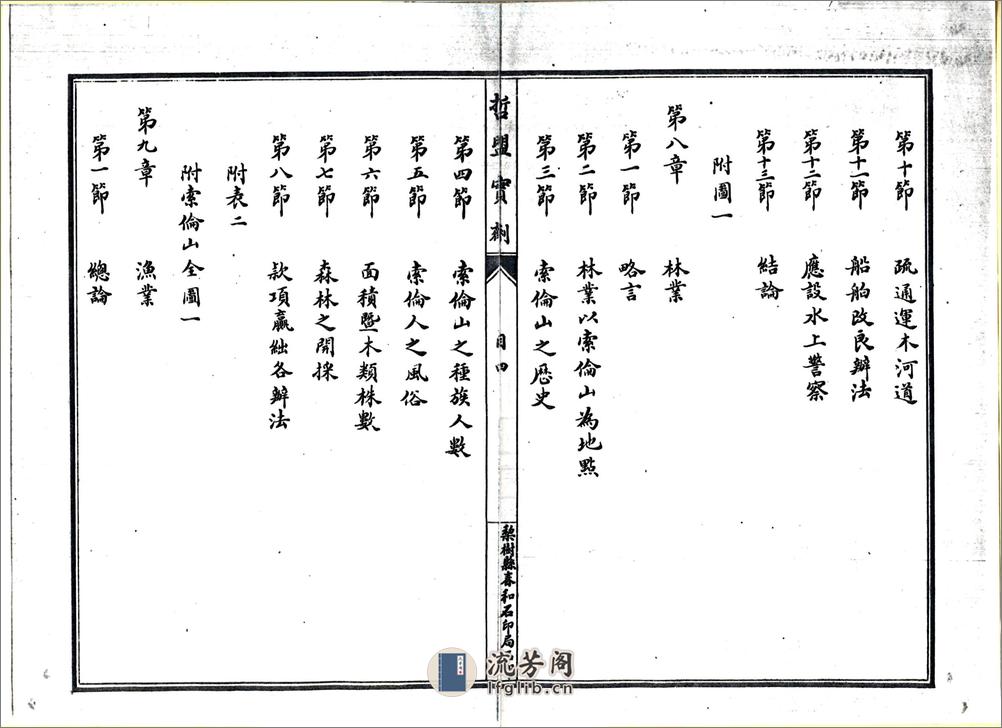 第十節 疏通運木河道
第十一節 船舶改良辦法
第十二節 應設水上警察
第十三節 結論
附圖一
第八章 林業
第一節 略言
第二節 林業以索倫山為地點
第三節 索倫山之歷史
哲盟實劑
目四
梨樹縣春和石印局
第四節 索倫山之種族人數
第五節 索倫人之風俗
第六節 面積暨木類株數
第七節 森林之開採
第八節 款項贏絀各辦法
附表二
附索倫山全圖一
第九章 漁業
第一節 總論
流芳阁
lfglib.cn